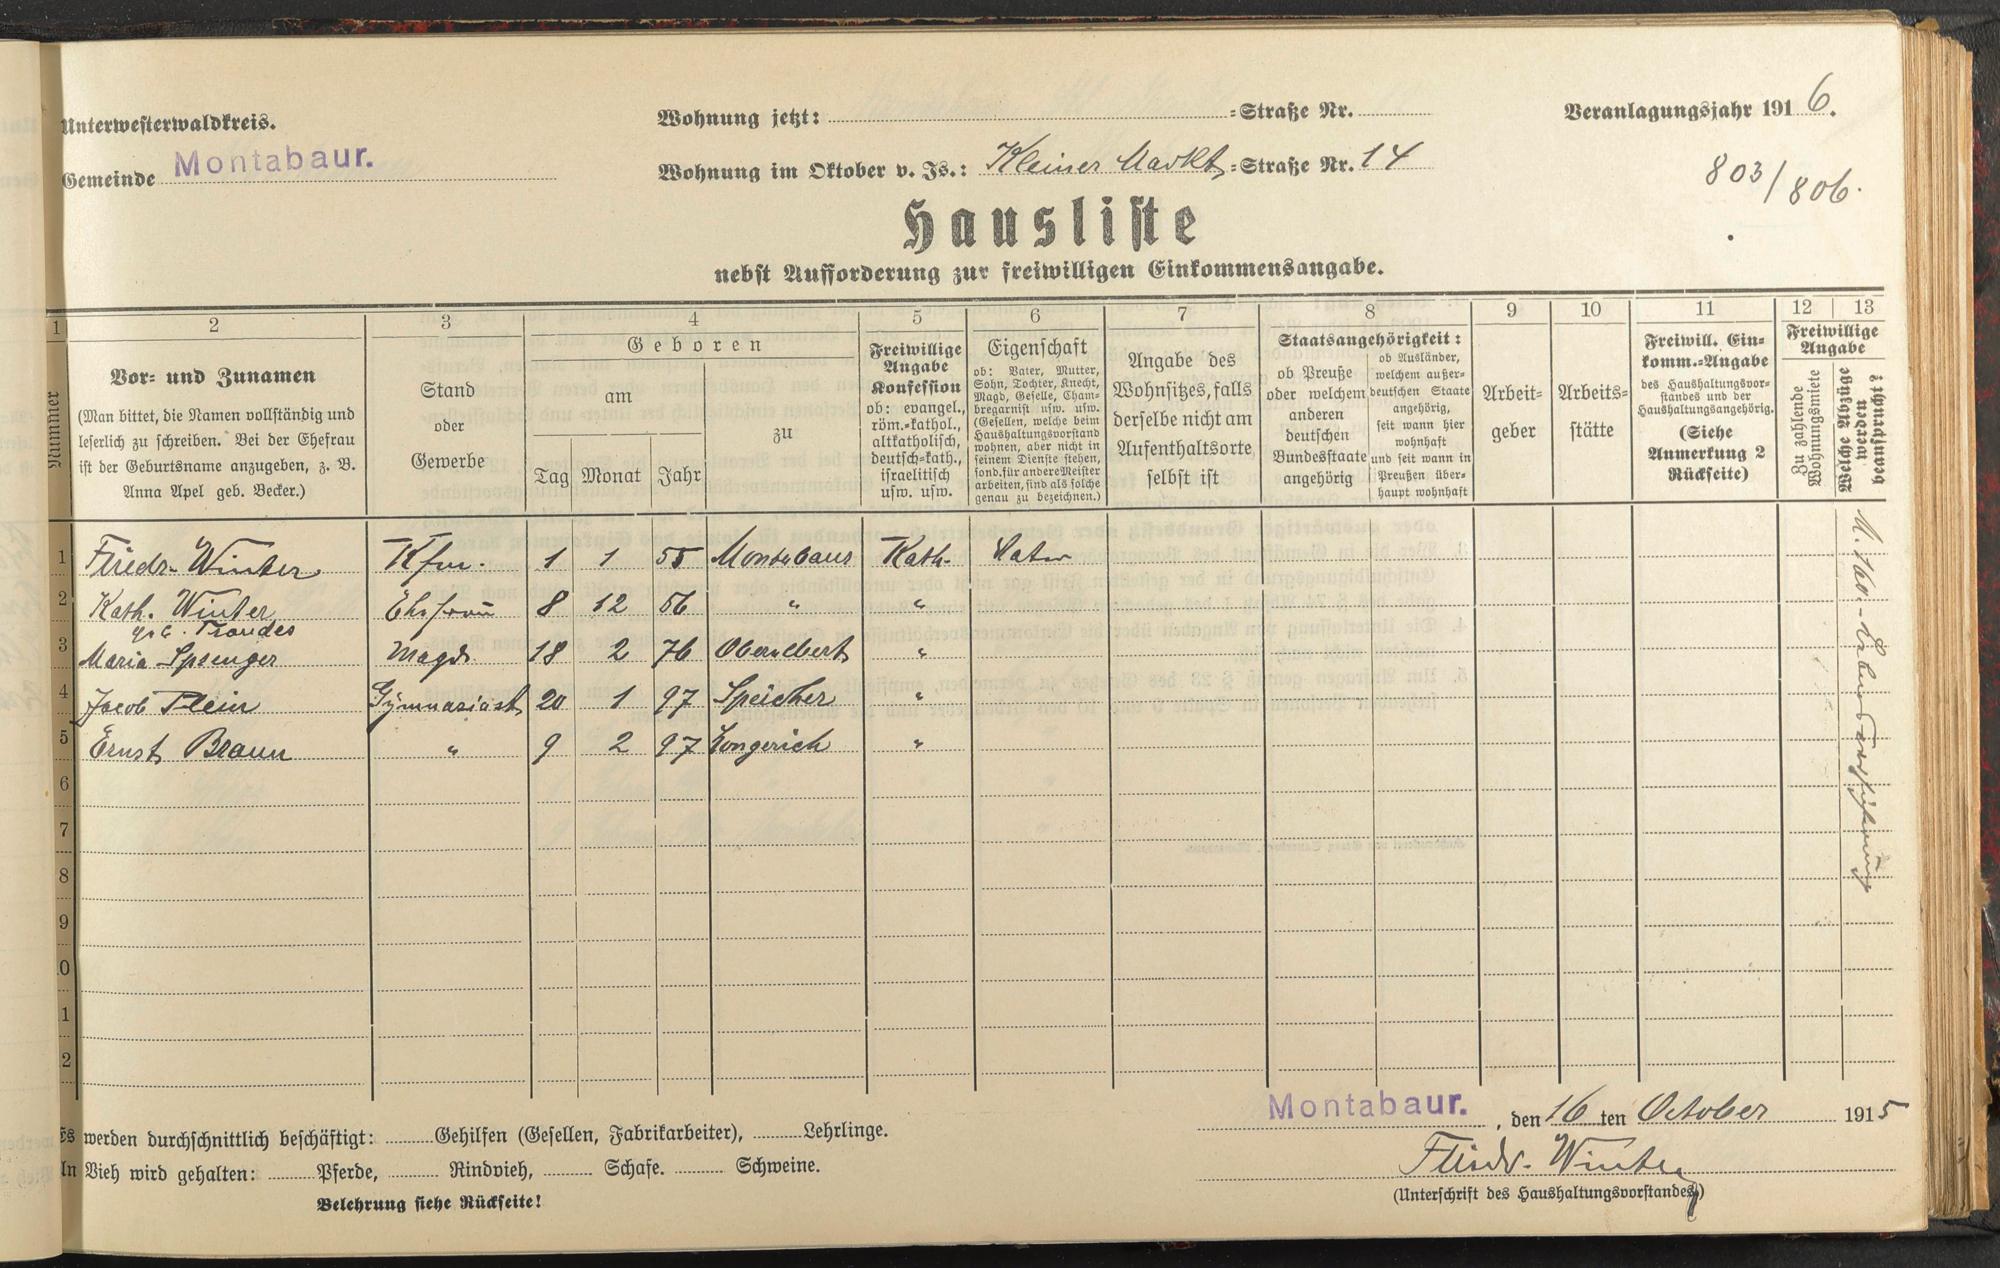 Unterwesterwaldkreis.
Gemeinde Montabaur.
Wohnung jetzt: =Straße Nr.
Wohnung im Oktober v. Js.: Kleiner Markt =Straße Nr. 14
Veranlagungsjahr 1916.
803/806.
Hausliste
nebst Aufforderung zur freiwilligen Einkommensangabe.
1 2 3 4 5 6 7 8 9 10 11 12 13
Nummer
Vor- und Zunamen
(Man bittet, die Namen vollständig und
leserlich zu schreiben. Bei der Ehefrau
ist der Geburtsname anzugeben, z. B.
Anna Apel geb. Becker.)
Stand
oder
Gewerbe
Geboren
am
zu
Tag Monat Jahr
Freiwillige
Angabe
Konfession
ob: evangel.,
röm.-kathol.,
altkatholisch,
deutsch-kath.,
israelitisch
usw. usw.
Eigenschaft
ob: Vater, Mutter,
Sohn, Tochter, Knecht,
Magd, Geselle, Cham-
bregarnist usw. usw.
(Gesellen, welche beim
Haushaltungsvorstand
wohnen, aber nicht in
seinem Dienste stehen,
sond. für andere Meister
arbeiten, sind als solche
genau zu bezeichnen.)
Angabe des
Wohnsitzes, falls
derselbe nicht am
Aufenthaltsorte
selbst ist
Staatsangehörigkeit:
ob Preuße
oder welchem
anderen
deutschen
Bundesstaate
angehörig
ob Ausländer,
welchem außer-
deutschen Staate
angehörig,
seit wann hier
wohnhaft
und seit wann in
Preußen über-
haupt wohnhaft
Arbeit-
geber
Arbeits-
stätte
Freiwill. Ein-
komm.-Angabe
des Haushaltungsvor-
standes und der
Haushaltungsangehörig.
(Siehe
Anmerkung 2
Rückseite)
Freiwillige
Angabe
Zu zahlende
Wohnungsmiete
Welche Abzüge
werden
beansprucht?
1 Friedr. Winter Kfm. 1 1 55 Montabaur Kath. Vater
2 Kath. Winter Ehefrau 8 12 56 " "
geb. Brandes
3 Maria Spenger Magd. 18 2 76 Oberelbert "
4 Jacob Plein Gymnasiast 20 1 97 Speicher "
5 Ernst Braun " 9 2 97 Longerich "
6
7
8
9
10
11
12
M. 160.- Lebensversicherung
Es werden durchschnittlich beschäftigt: Gehilfen (Gesellen, Fabrikarbeiter), Lehrlinge.
An Vieh wird gehalten: Pferde, Rindvieh, Schafe. Schweine.
Belehrung siehe Rückseite!
Montabaur. , den 16 ten October 1915
Friedr. Winter
(Unterschrift des Haushaltungsvorstandes)